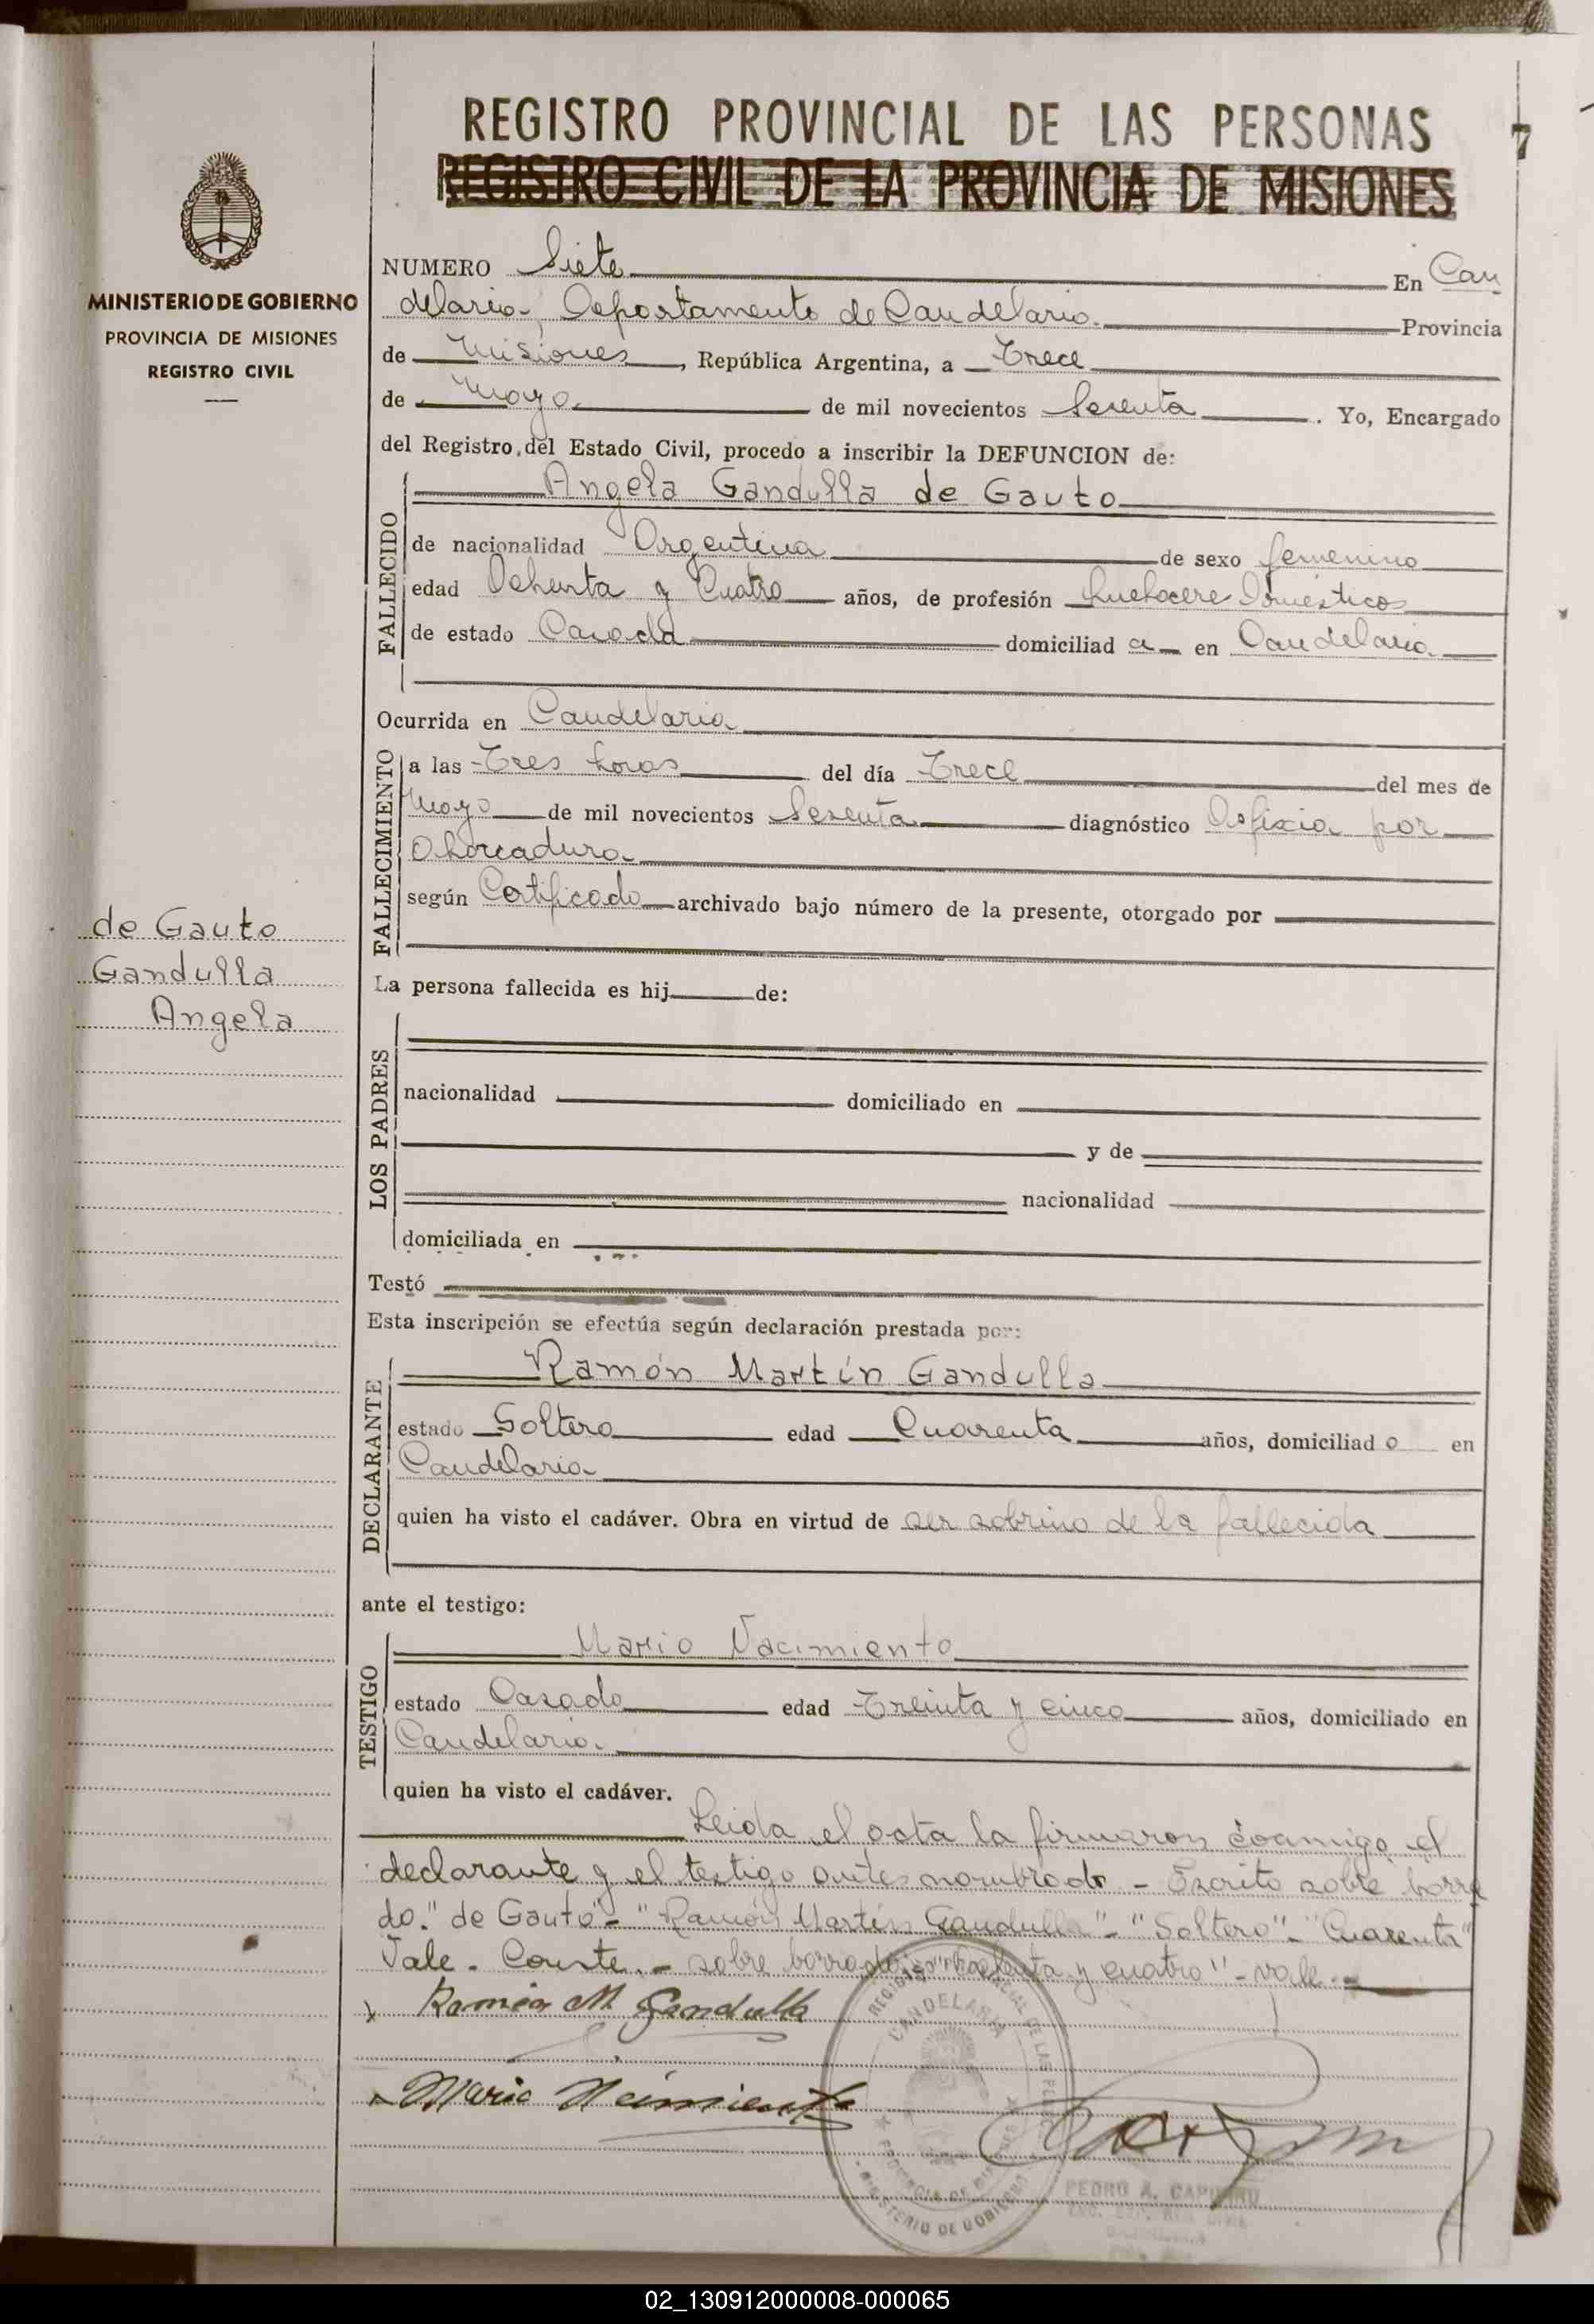 REGISTRO PROVINCIAL DE LAS PERSONAS
7
REGISTRO CIVIL DE LA PROVINCIA DE MISIONES
MINISTERIO DE GOBIERNO
PROVINCIA DE MISIONES
REGISTRO CIVIL
NUMERO Siete En Can
delaria, Departamento de Candelaria. Provincia
de Misiones, República Argentina, a Trece
de Mayo. de mil novecientos Sesenta. Yo, Encargado
del Registro del Estado Civil, procedo a inscribir la DEFUNCION de:
FALLECIDO
Angela Gandulla de Gauto
de nacionalidad Argentina de sexo femenino
edad Ochenta y Cuatro años, de profesión Quehacere Domésticos
de estado Casada domiciliad a en Candelaria.
Ocurrida en Candelaria
FALLECIMIENTO
a las Tres horas del día Trece del mes de
Mayo de mil novecientos Sesenta diagnóstico Asfixia por
Ahorcadura
según Certificado archivado bajo número de la presente, otorgado por
de Gauto
Gandulla
Angela
La persona fallecida es hij de:
LOS PADRES
nacionalidad domiciliado en
y de
nacionalidad
domiciliada en
Testó
Esta inscripción se efectúa según declaración prestada por:
DECLARANTE
Ramón Martín Gandulla
estado Soltero edad Cuarenta años, domiciliad o en
Candelaria
quien ha visto el cadáver. Obra en virtud de ser sobrino de la fallecida
ante el testigo:
TESTIGO
Mario Nacimiento
estado Casado edad Treinta y cinco años, domiciliado en
Candelaria.
quien ha visto el cadáver.
Leida el acta la firmaron conmigo el
declarante y el testigo antes nombrado - Escrito sobre borra
do." de Gauto"- "Ramón Martín Gandulla"- "Soltero"- "Cuarenta"
Vale. Conste.- sobre borrado: "Ochenta y cuatro"- vale.-
Ramón M Gandulla
Mario Nacimiento
REGISTRO PROVINCIAL DE LAS PERSONAS
CANDELARIA
PROVINCIA DE MISIONES
MINISTERIO DE GOBIERNO
PEDRO A.
02_130912000008-000065